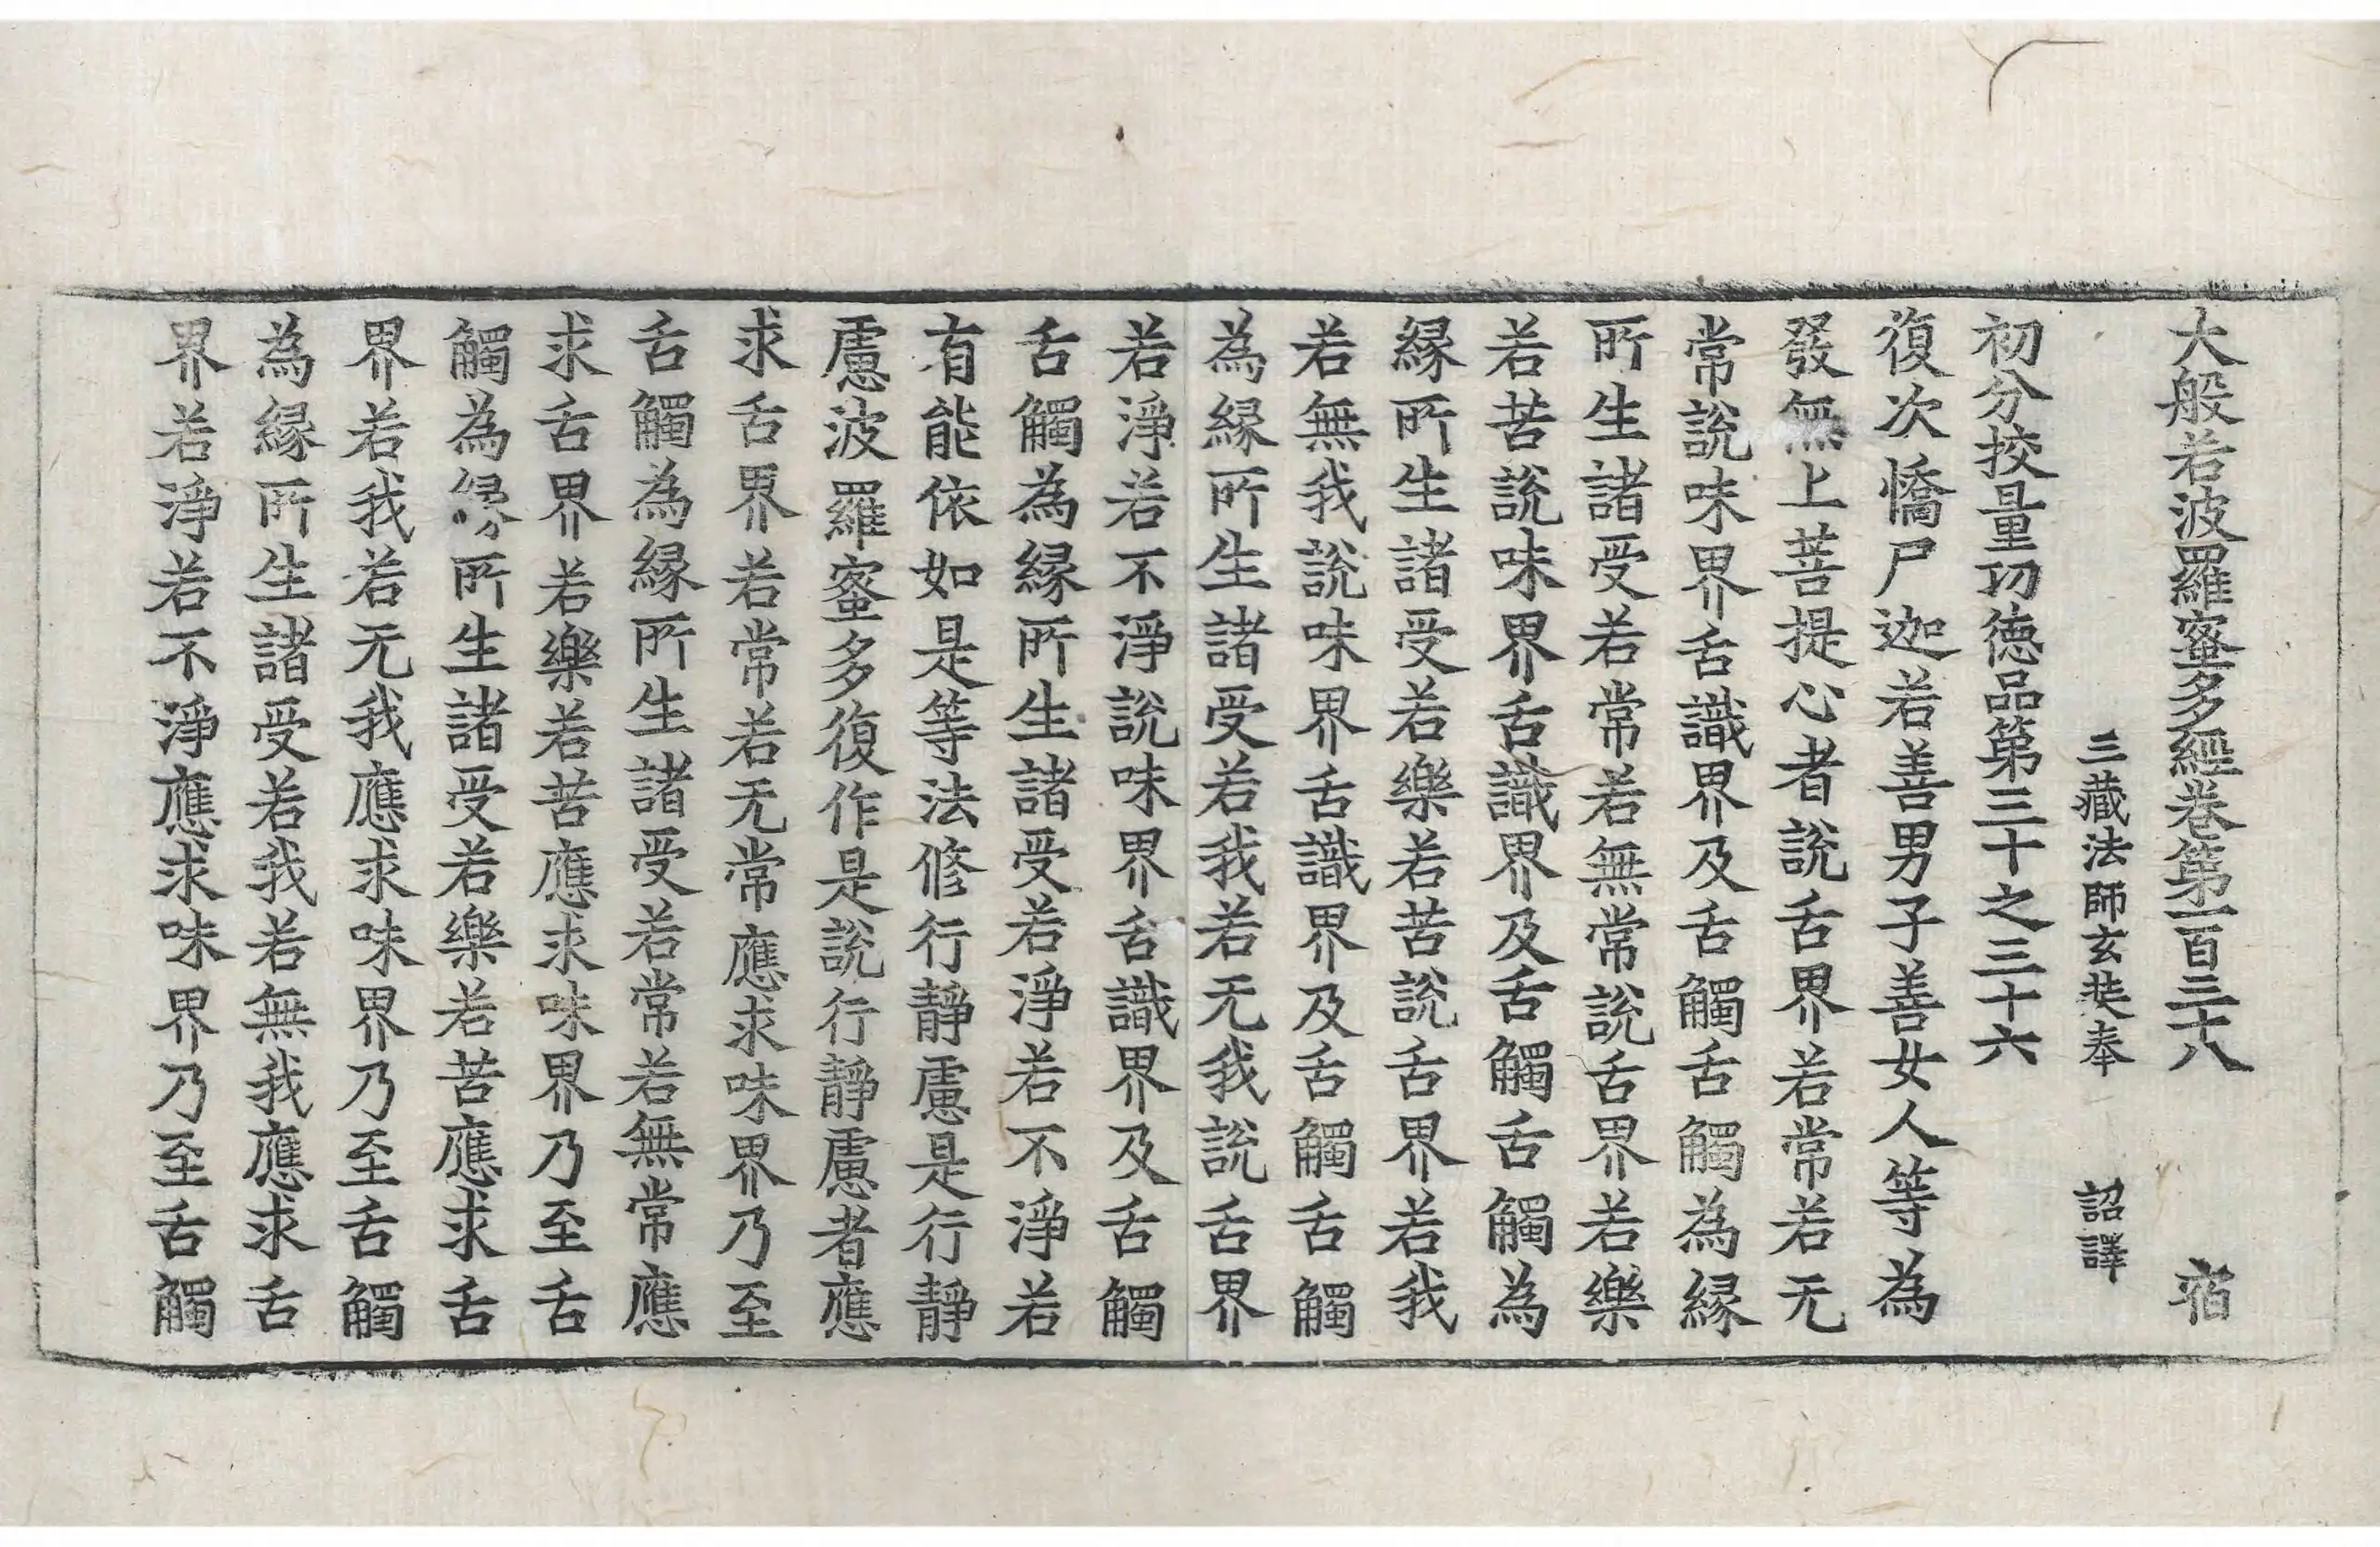 大般若波羅蜜多經卷第一百三十八 宿
三藏法師玄奘奉 詔譯
初分挍量功德品第三十之三十六
復次憍尸迦若善男子善女人等為
發無上菩提心者說舌界若常若无
常說味界舌識界及舌觸舌觸為緣
所生諸受若常若無常說舌界若樂
若苦說味界舌識界及舌觸舌觸為
緣所生諸受若樂若苦說舌界若我
若無我說味界舌識界及舌觸舌觸
為緣所生諸受若我若无我說舌界
若淨若不淨說味界舌識界及舌觸
舌觸為緣所生諸受若淨若不淨若
有能依如是等法修行靜慮是行靜
慮波羅蜜多復作是說行靜慮者應
求舌界若常若无常應求味界乃至
舌觸為緣所生諸受若常若無常應
求舌界若樂若苦應求味界乃至舌
觸為緣所生諸受若樂若苦應求舌
界若我若无我應求味界乃至舌觸
為緣所生諸受若我若無我應求舌
界若淨若不淨應求味界乃至舌觸